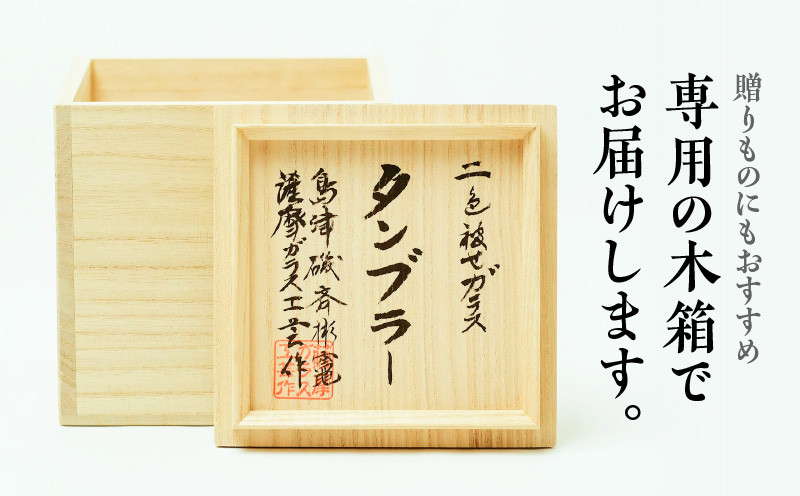 贈りものにもおすすめ
専用の木箱で
お届けします。
二色被せガラス
タンブラー
島津 磯 斉彬竈
薩摩ガラス工芸作